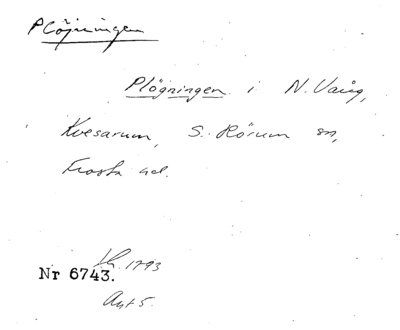 Plöjningen
Plögningen i N. Vång,
Kvesarum, S. Rörum sn,
Frosta hd.
1793
Nr 6743.
Akt 5.